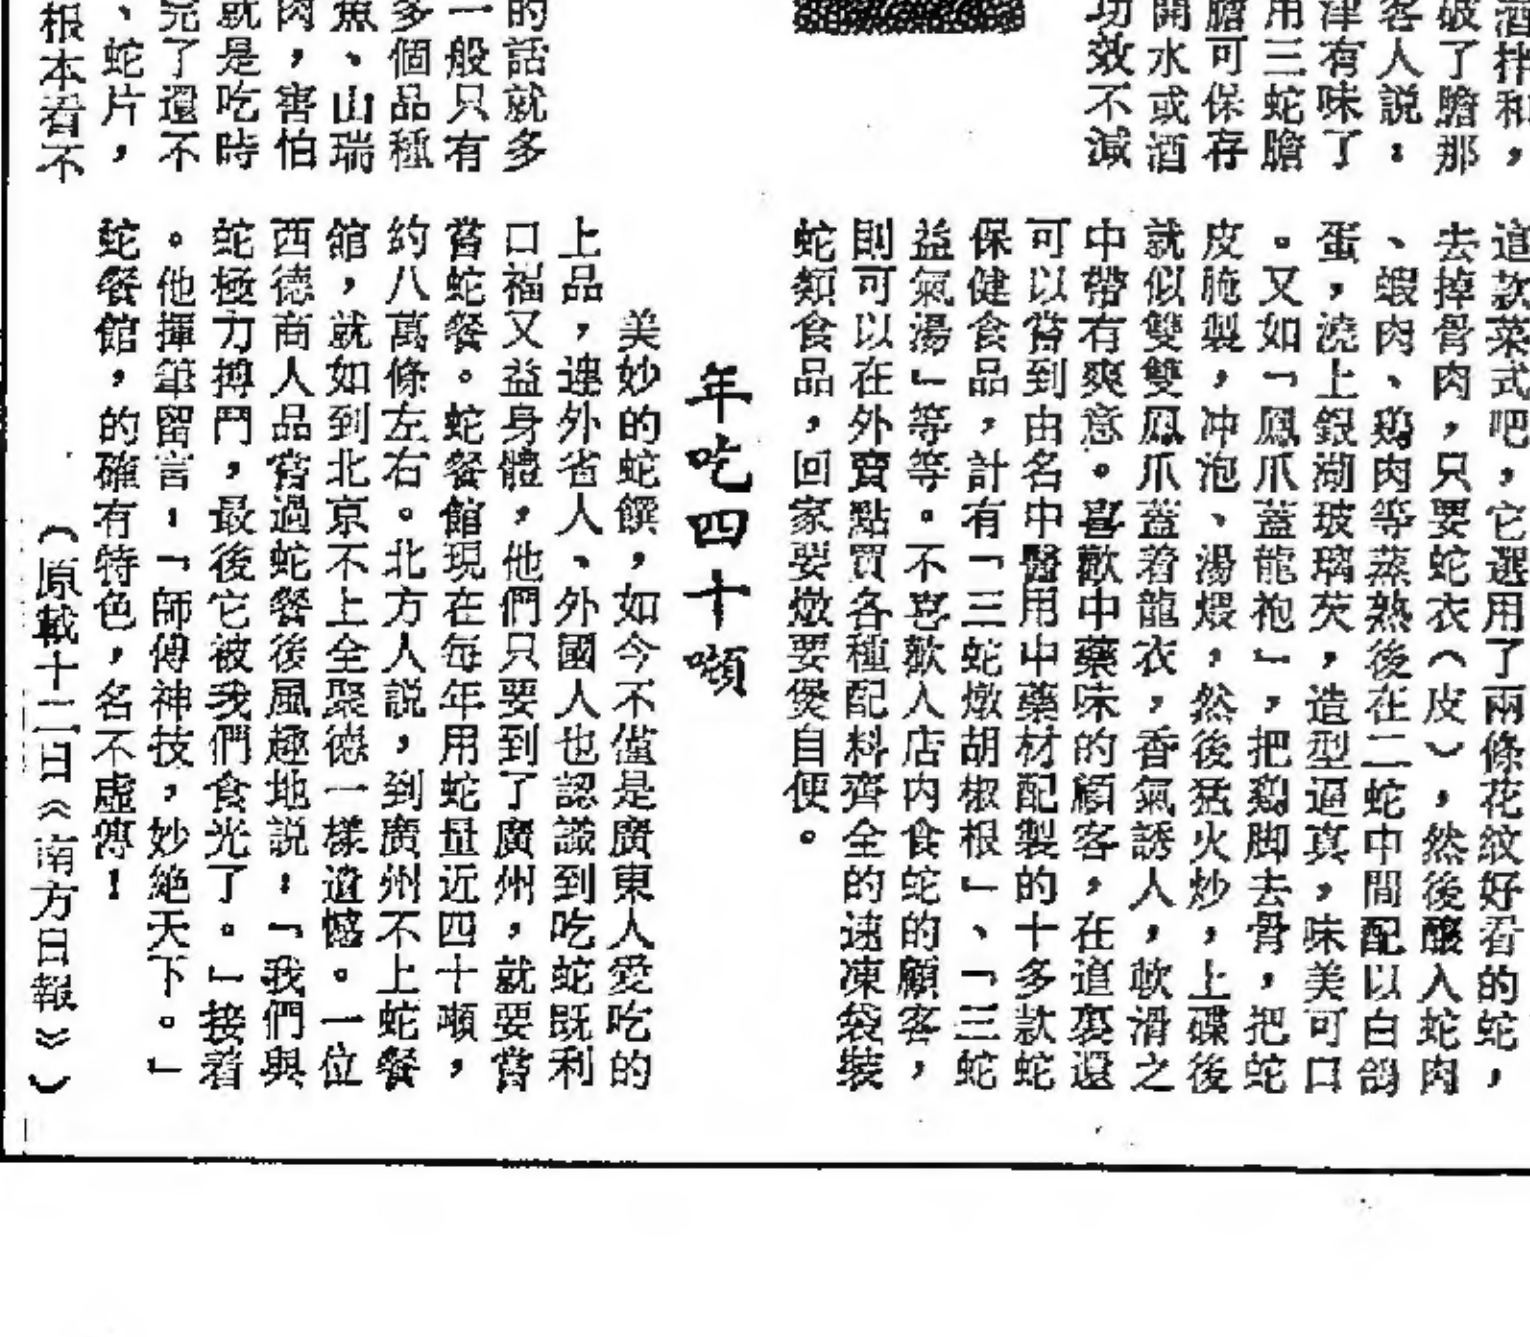 酒拌和，
破了膽那
客人説：
津有味了
用三蛇膽
膽可保存
開水或酒
功效不減
的話就多
一般只有
多個品種
魚、山瑞
肉，害怕
就是吃時
完了還不
、蛇片，
根本看不
這款菜式吧，它選用了兩條花紋好看的蛇，
去掉骨肉，只要蛇衣（皮），然後釀入蛇肉
、蝦肉、鷄肉等蒸熟後在二蛇中間配以白鴿
蛋，澆上銀湖玻璃芡，造型逼真，味美可口
。又如「鳳爪蓋龍袍」，把鷄脚去骨，把蛇
皮腌製，冲泡、湯煨，然後猛火炒，上碟後
就似雙雙鳳爪蓋着龍衣，香氣誘人，軟滑之
中帶有爽意。喜歡中藥味的顧客，在這裏還
可以嘗到由名中醫用中藥材配製的十多款蛇
保健食品，計有「三蛇燉胡椒根」、「三蛇
益氣湯」等等。不喜歡入店内食蛇的顧客，
則可以在外賣點買各種配料齊全的速凍袋裝
蛇類食品，回家要燉要煲自便。
年吃四十噸
美妙的蛇饌，如今不僅是廣東人愛吃的
上品，連外省人、外國人也認識到吃蛇既利
口福又益身體，他們只要到了廣州，就要嘗
嘗蛇餐。蛇餐館現在每年用蛇量近四十噸，
約八萬條左右。北方人説，到廣州不上蛇餐
館，就如到北京不上全聚德一樣遺憾。一位
西德商人品嘗過蛇餐後風趣地説：「我們與
蛇極力搏鬥，最後它被我們食光了。」接着
。他揮筆留言：「師傅神技，妙絶天下。」
蛇餐館，的確有特色，名不虛傳！
（原載十二日《南方日報》）